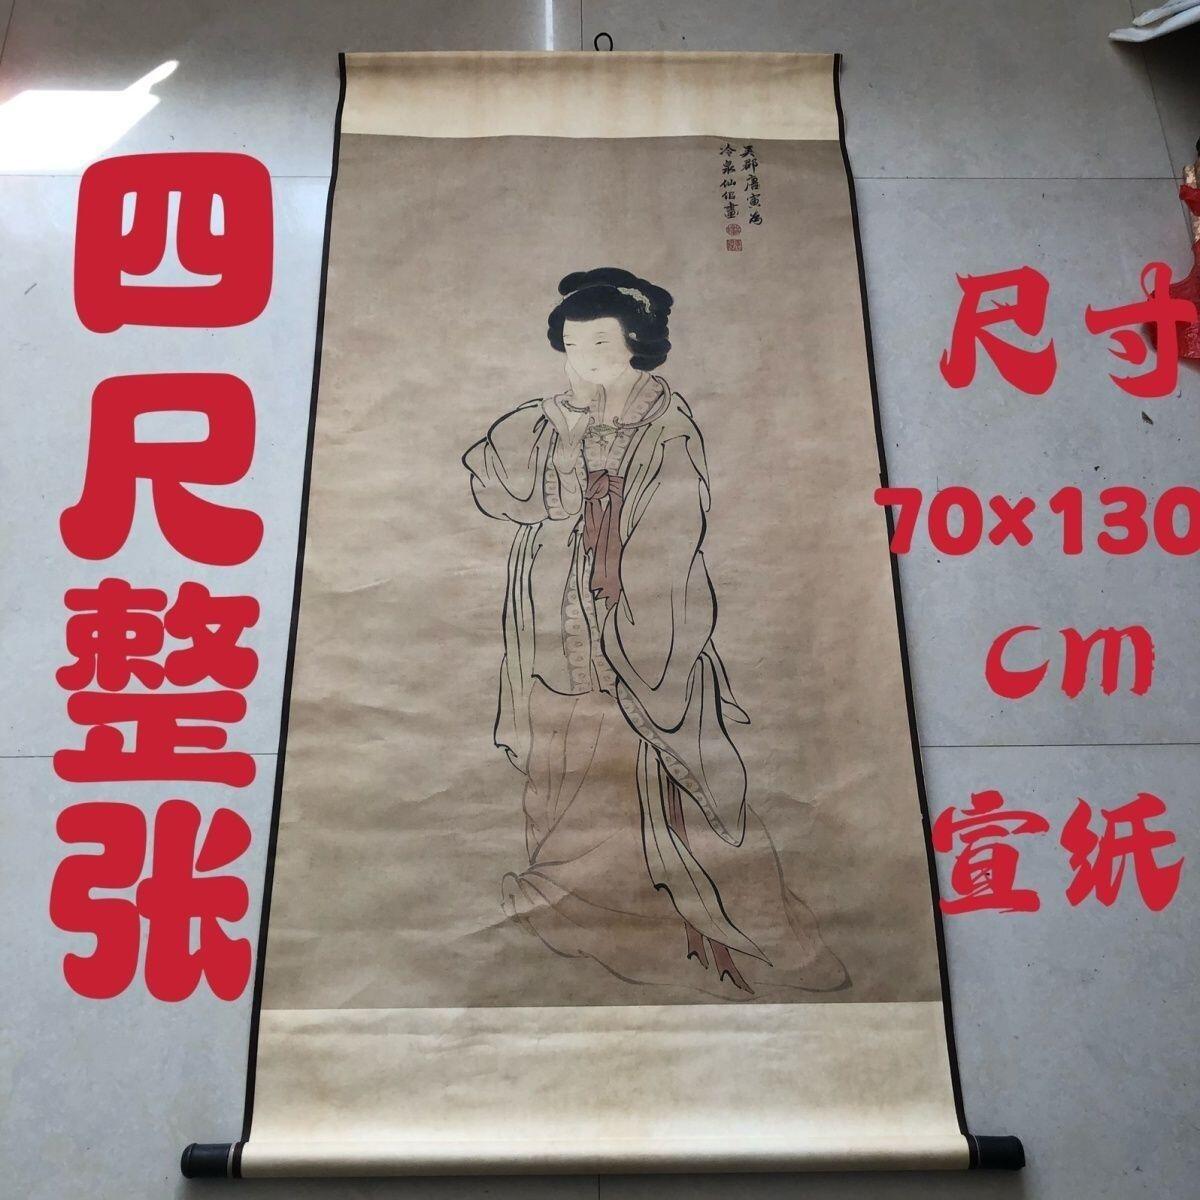 四尺整张
尺寸
70×130
cm
宣纸
吴郡唐寅為
冷泉仙侣畫